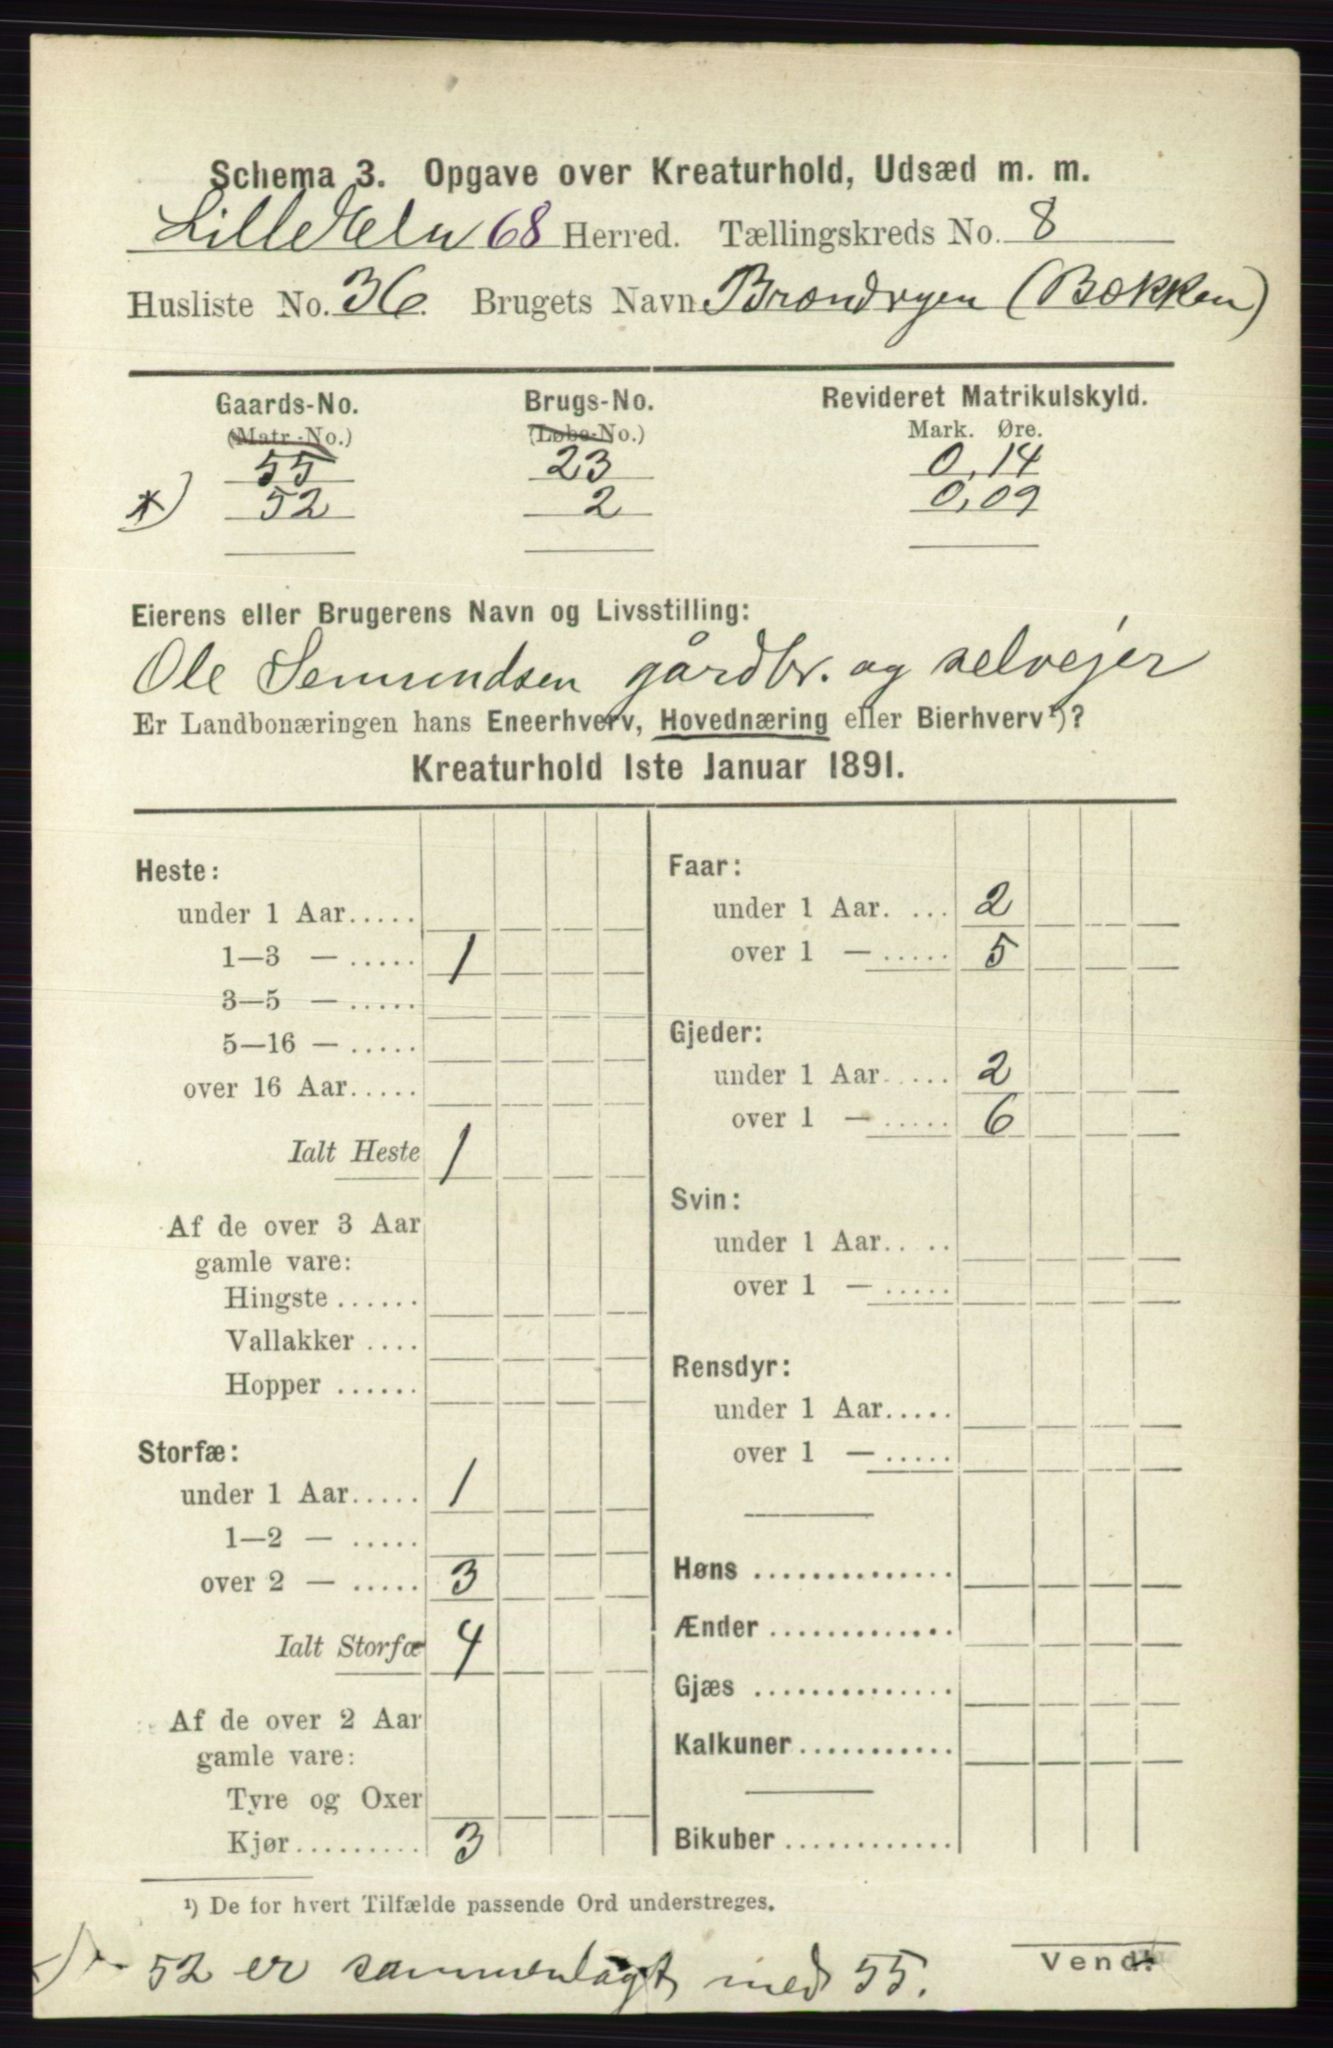 Schema 3. Opgave over Kreaturhold, Udsæd m. m.
Lille Elv 68 Herred. Tællingskreds No. 8
Husliste No. 36. Brugets Navn Brændryen (Bækken)
Gaards-No. Brugs-No. Revideret Matrikulskyld.
(Matr.-No.) (Løbe-No.) Mark. Øre.
55 23 0,14
*) 52 2 0,09
Eierens eller Brugerens Navn og Livsstilling:
Ole Semundsen gårdbr. og selvejer
Er Landbonæringen hans Eneerhverv, Hovednæring eller Bierhverv¹)?
Kreaturhold 1ste Januar 1891.
Heste:
under 1 Aar.....
1—3 — ..... 1
3—5 — .....
5—16 — .....
over 16 Aar.....
Ialt Heste 1
Af de over 3 Aar
gamle vare:
Hingste ......
Vallakker ....
Hopper ......
Storfæ:
under 1 Aar..... 1
1—2 — .....
over 2 — ..... 3
Ialt Storfæ 4
Af de over 2 Aar
gamle vare:
Tyre og Oxer
Kjør......... 3
Faar:
under 1 Aar. ... 2
over 1 — ..... 5
Gjeder:
under 1 Aar..... 2
over 1 — ..... 6
Svin:
under 1 Aar.. ..
over 1 — .....
Rensdyr:
under 1 Aar.....
over 1 — .....
Høns ..............
Ænder .............
Gjæs ..............
Kalkuner...........
Bikuber ............
¹) De for hvert Tilfælde passende Ord understreges.
Vend!
*) 52 er sammenlagt med 55.